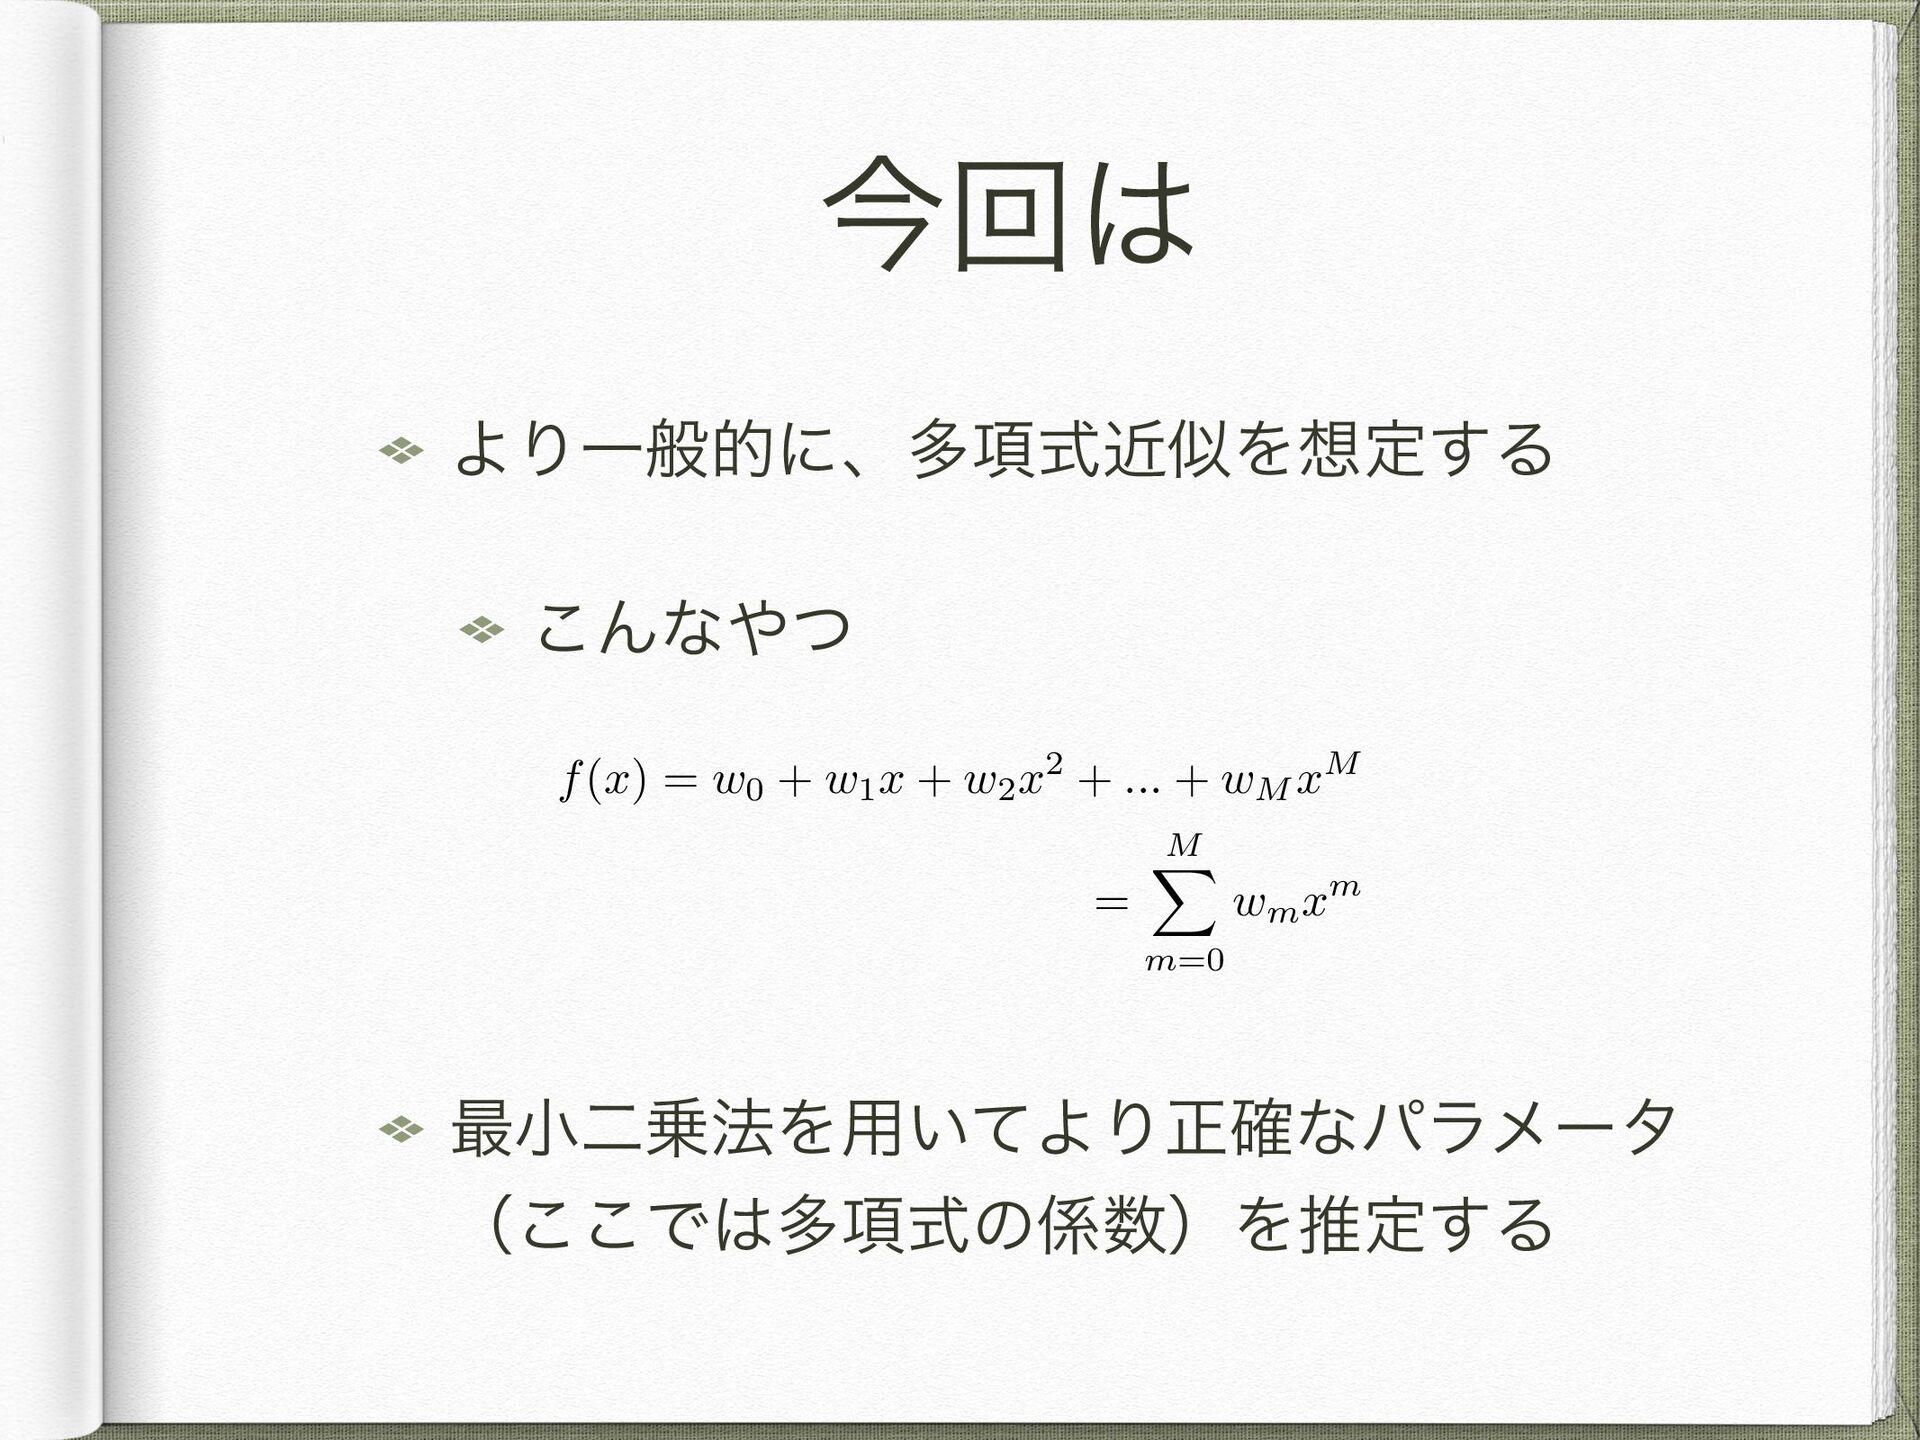 今回は
より一般的に、多項式近似を想定する
こんなやつ
f(x) = w_0 + w_1x + w_2x^2 + ... + w_Mx^M
= \sum_{m=0}^{M} w_mx^m
最小二乗法を用いてより正確なパラメータ
（ここでは多項式の係数）を推定する